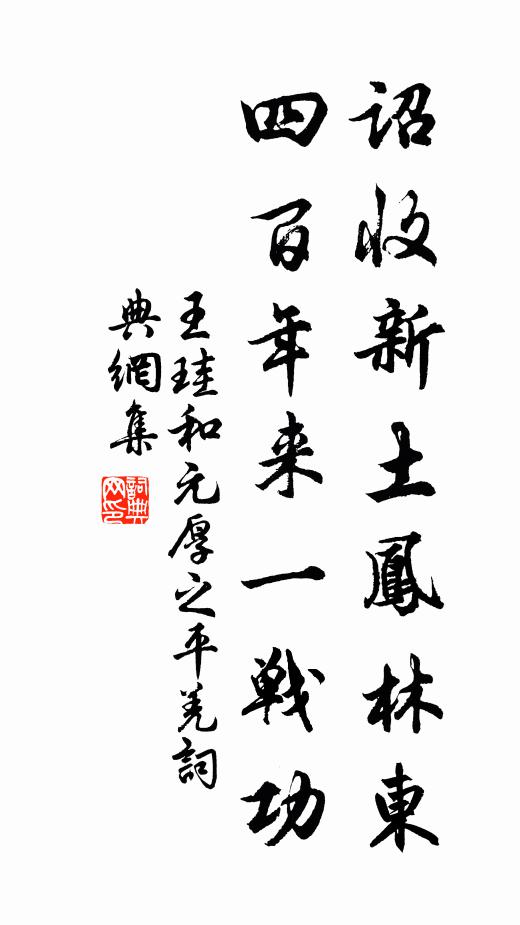 詔收新土鳳林東
四百年来一戰功
王珪和元厚之平羌詞
典網集
詞典网印